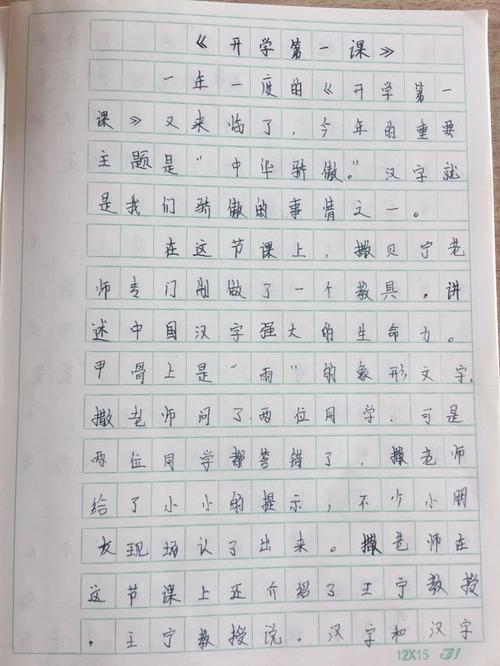 《开学第一课》
一年一度的《开学第一
课》又来临了，今年的重要
主题是“中华骄傲。”汉字就
是我们骄傲的事情之一。
在这节课上，撒贝宁老
师专门制做了一个教具，讲
述中国汉字强大的生命力。
甲骨上是“雨”的象形文字，
撒老师问了两位同学．可是
两位同学都答错了，撒老师
给了小小的提示，不少小朋
友现场认了出来。撒老师在
这节课上还介绍了王宁教授
，王宁教授说．汉字和汉字
12×15